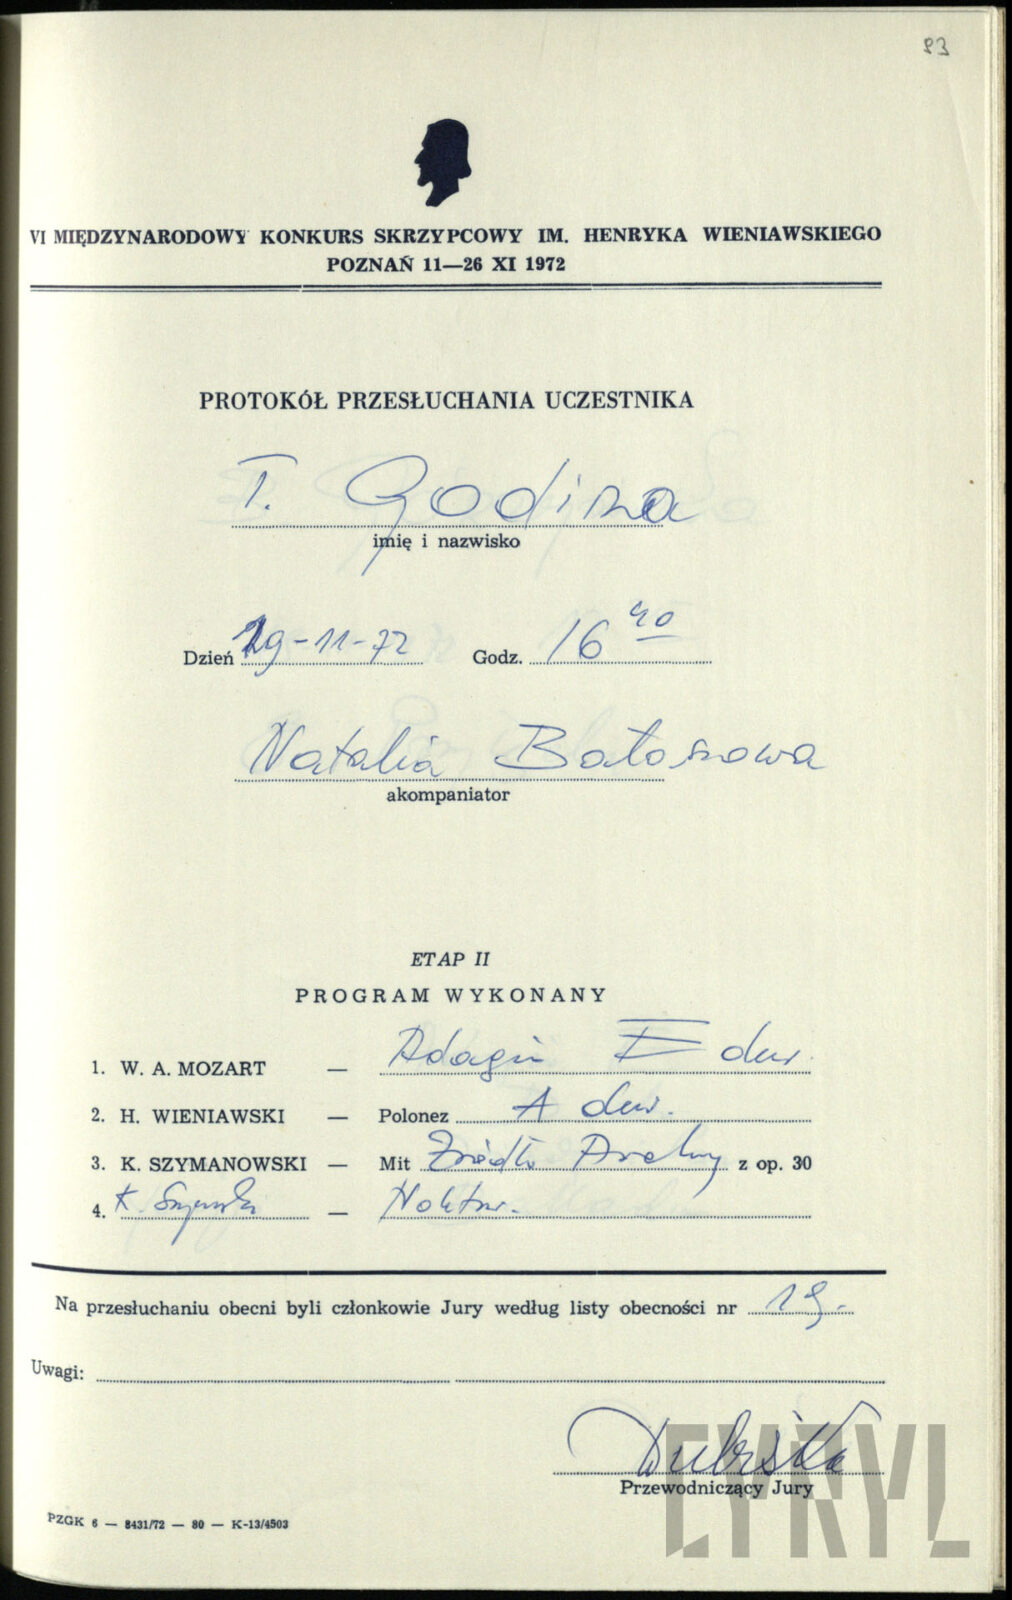 83
VI MIĘDZYNARODOWY KONKURS SKRZYPCOWY IM. HENRYKA WIENIAWSKIEGO
POZNAŃ 11—26 XI 1972
PROTOKÓŁ PRZESŁUCHANIA UCZESTNIKA
T. Godisza
imię i nazwisko
Dzień 19-11-72 Godz. 16 40
Natalia Batoszowa
akompaniator
ETAP II
PROGRAM WYKONANY
1. W. A. MOZART — Adagio E dur.
2. H. WIENIAWSKI — Polonez A dur.
3. K. SZYMANOWSKI — Mit Źródło Aretuzy z op. 30
4. K. — Noktur.
Na przesłuchaniu obecni byli członkowie Jury według listy obecności nr 19.
Uwagi:
Dubiska
Przewodniczący Jury
PZGK 6 — 8431/72 — 80 — K-13/4503
CYRYL